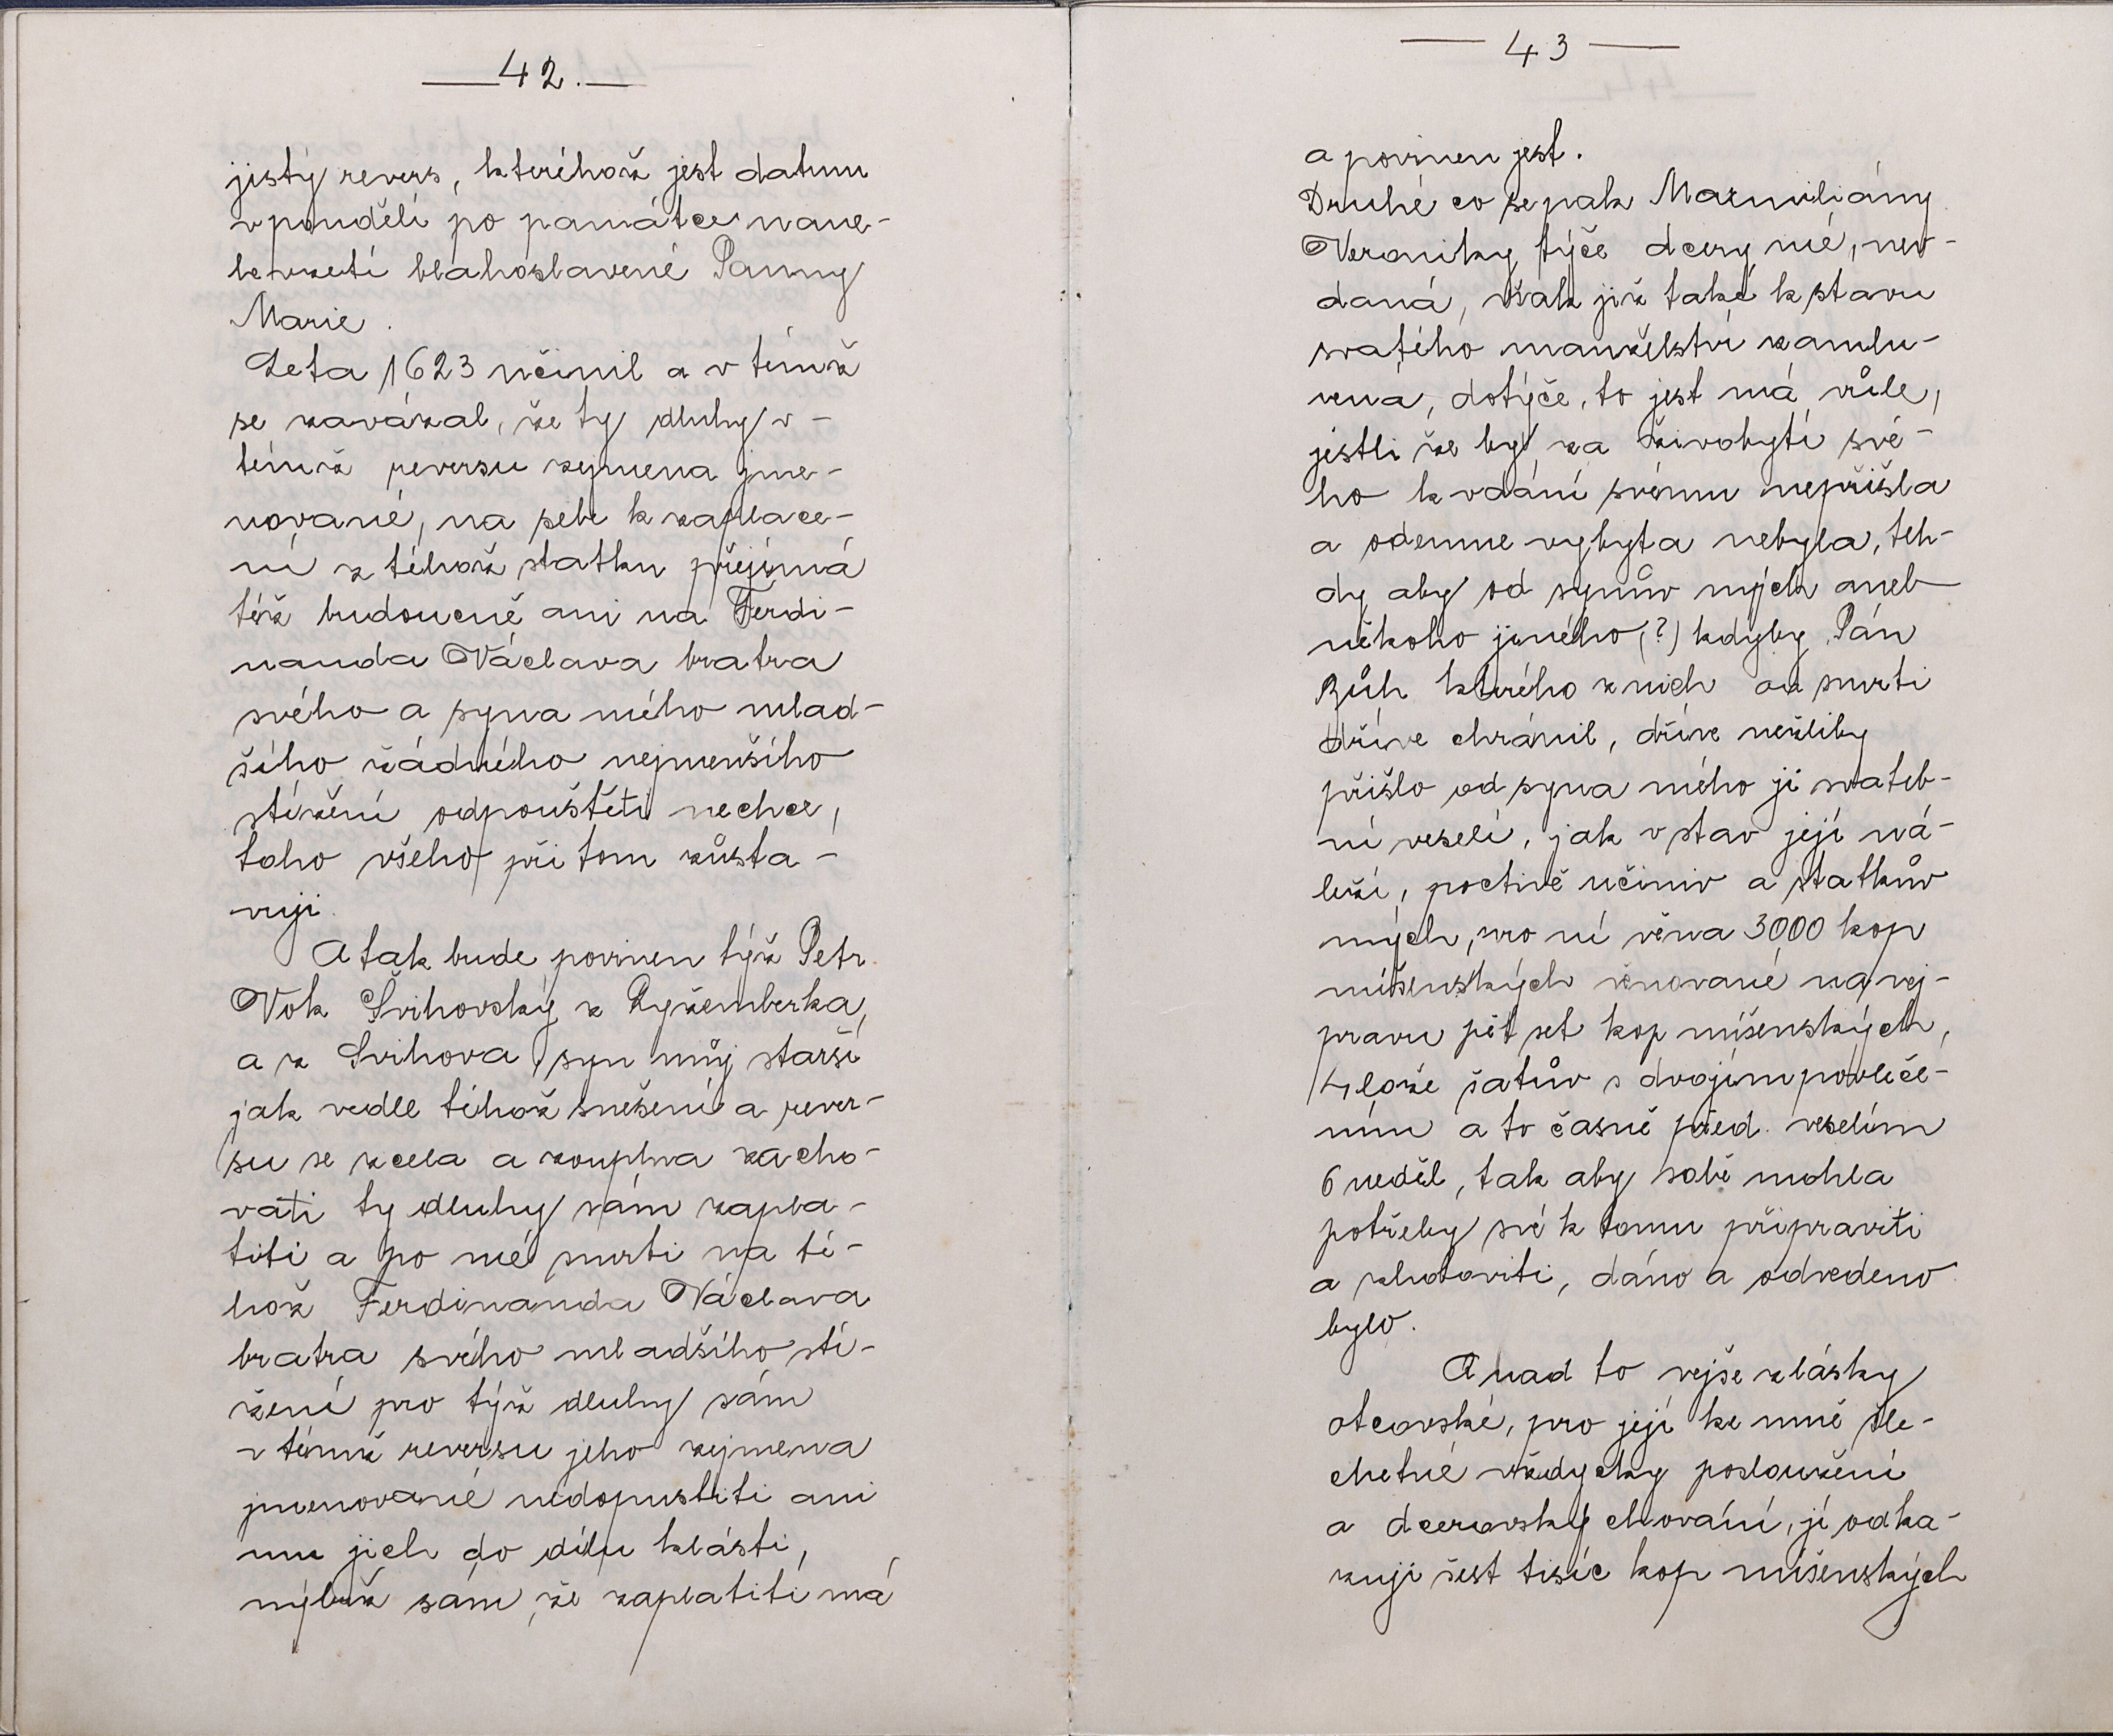 42.
jistý revers, kteréhož jest datum
v pondělí po památce nane-
bevzetí blahoslavené Panny
Marie.
Leta 1623 učinil a v témž
se zavázal, že ty dluhy v-
témž reversu zejmena jme-
nované, na sebe k zaplace-
ní z téhož statku přejímá
též budoucně ani na Ferdi-
nanda Václava bratra
svého a syna mého mlad-
šího žádného nejmenšího
stížení odpouštěti nechce,
toho všeho při tom zůsta-
vuji.
A tak bude povinen týž Petr
Vok Švihovský z Ryžemberka,
a z Švihova syn můj starší
jak vedle téhož snešení a rever-
su se zcela a zouplna zacho-
vati ty dluhy sám zapla-
titi a po mé smrti na té-
hož Ferdinanda Václava
bratra svého mladšího stí-
žení pro týž dluhy sám
v témž reversu jeho zejmena
jmenované nedopustiti ani
mu jich do dílu klásti,
nýbrž sám, že zaplatiti má
43
a povinen jest.
Druhé co se pak Maxmiliány
Veroniky týče dcery mé, nev-
daná, však již také k stavu
svatého manželství zamlu-
vená, dotýče, to jest má vůle,
jestli že by za živobytí své-
ho k vdání svému nepřišla
a odemne vybyta nebyla, teh-
dy aby od synův mých aneb
někoho jiného (?) kdyby Pán
Bůh kterého z nich od smrti
dříve chránil, dříve nežliby
přišlo od syna mého jí svateb-
ní veselí, jak v stav její ná-
leží, poctivě učiniv a statkův
mých, pro ní věna 3000 kop
míšenských věnované na vej-
pravu pět set kop míšenských,
4 lože šatův s dvojím povleče-
ním a to časně před veselím
6 neděl, tak aby sobě mohla
potřeby své k tomu připraviti
a zhotoviti, dáno a odvedeno
bylo.
A nad to vejše z lásky
otcovské, pro její ke mně šle-
chetné vždycky posloužení
a dcerovský chování, jí odka-
zuji šest tisíc kop míšenských